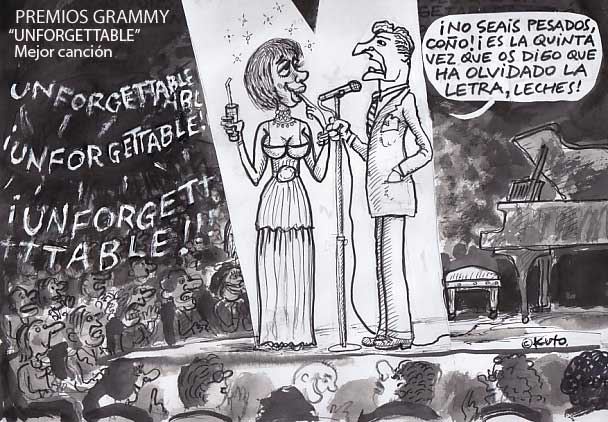 PREMIOS GRAMMY
“UNFORGETTABLE”
Mejor canción
UNFORGETTABLE
¡UNFORGETTABLE!
¡UNFORGETT
TTTTABLE!!
¡NO SEAIS PESADOS,
COÑO! ¡ES LA QUINTA
VEZ QUE OS DIGO QUE
HA OLVIDADO LA
LETRA, LECHES!
©KUTO.